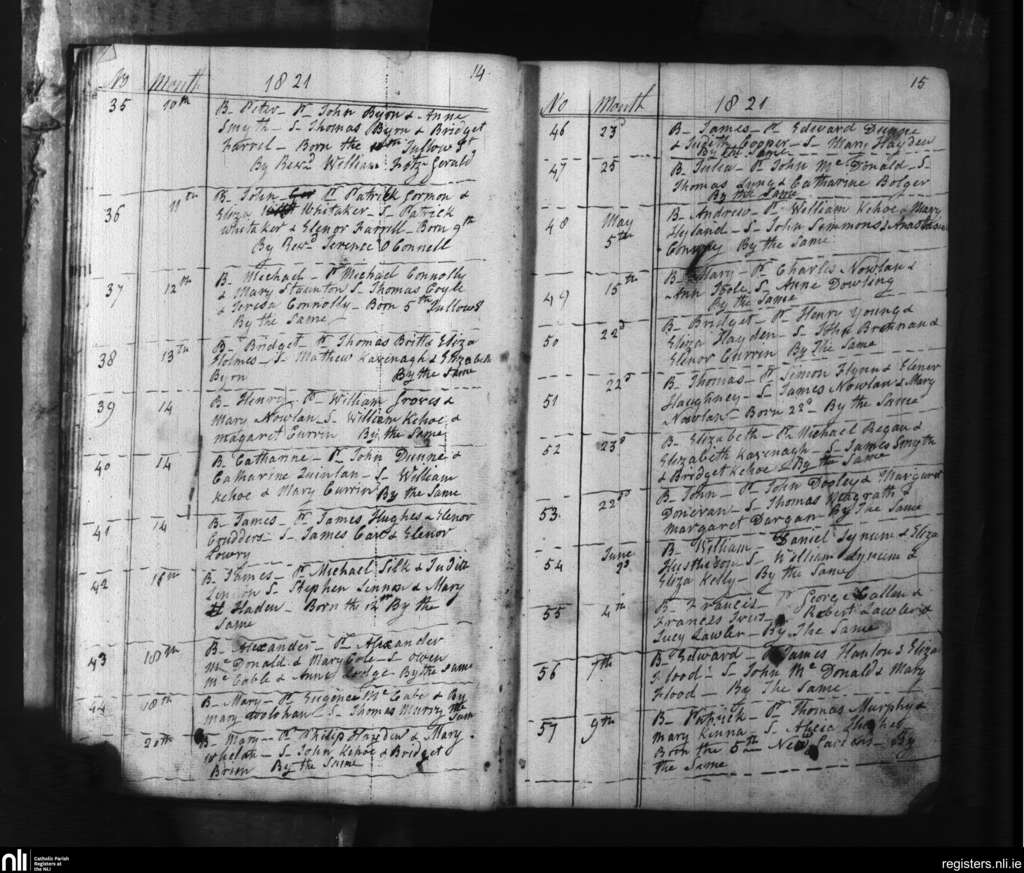 No Month 1821 14
35 10th B- Peter- Pt John Byon & Anne
Smyth - S- Thomas Byon & Bridget
Farrel - Born the Tullow St
By Revd William Fitz Gerald
36 11th B- John Pt Patrick Cormon &
Eliza Whitaker - S- Patrick
Whitaker & Elenor Farrell - Born 9th
By Revd Terence O Connell
37 12th B- Michael - Pt Michael Connolly
& Mary Staunton S- Thomas Coyle
& Teresa Connolly - Born 5th Tullow St
By the Same
38 13th B- Bridget Pt Thomas Britt & Eliza
Holmes - S- Mathew Kavenagh & Elizabeth
Byon By the Same
39 14 B- Henry - Pt William Groves &
Mary Nowlan - S- William Kehoe &
Magaret Currin By the Same
40 14 B- Catharine - Pt John Dunne &
Catharine Quinlan - S- William
Kehoe & Mary Currin By the Same
41 14 B- James - Pt James Hughes & Elenor
S- James & Elenor
Lowry
42 18th B- James - Pt Michael Silk & Judith
S- Stephen Lennon & Mary
Haden - Born the 12th By the
Same
43 18th B- Alexander - Pt Alexander
Mc Donald & Mary Cole - S- Owen
Mc Cable & Anne Lodge By the Same
44 18th B- Mary - Pt Eugene Mc Cabe & By
Mary S- Thomas Murry the Same
20th B- Mary - Pt Philip Hayden & Mary
Whelan - S- John Kehoe & Bridget
Brien By the Same
No Month 1821 15
46 23d B- James - Pt Edward Dunne
& Judith Cooper - S- Mary Hayden
By the Same
47 25 B- Julia - Pt John Mc Donald - S-
Thomas Lung & Catharine Bolger
By the Same
48 May 5th B- Andrew - Pt William Kehoe & Mary
Hyland - S- John Simmons & Anastasia
By the Same
49 15th B- Mary - Pt Charles Nowlan &
Ann Tool S- Anne Dowling
By the Same
50 22d B- Bridget - Pt Henry Young &
Eliza Hayden - S- John Brennan &
Elenor Currin By The Same
51 22d B- Thomas - Pt Simon Flynn & Elenor
Haughney - S- James Nowlan & Mary
Nowlan Born 22d By the Same
52 23d B- Elizabeth - Pt Michael Regan &
Elizabeth Kavenagh - S- James Smyth
& Bridget Kehoe By the Same
53 22d B- John - Pt John Dooley & Margaret
Donevan - S- Thomas Megrath &
Margaret Dargan By The Same
54 June B- William Daniel Tynum & Eliza
S- William Tynum &
Eliza Kelly - By the Same
55 4th B- Francis - Pt George Callen &
Frances Robert Lawler &
Lucy Lawler - By The Same
56 7th B- Edward - Pt James Hanlon & Eliza
Flood - S- John Mc Donald & Mary
Flood - By The Same
57 9th B- Patrick - Pt Thomas Murphy &
Mary Kinna - S- Alicia
Born the 5th New By
the Same
nli Catholic Parish
Registers at
the NLI
registers.nli.ie